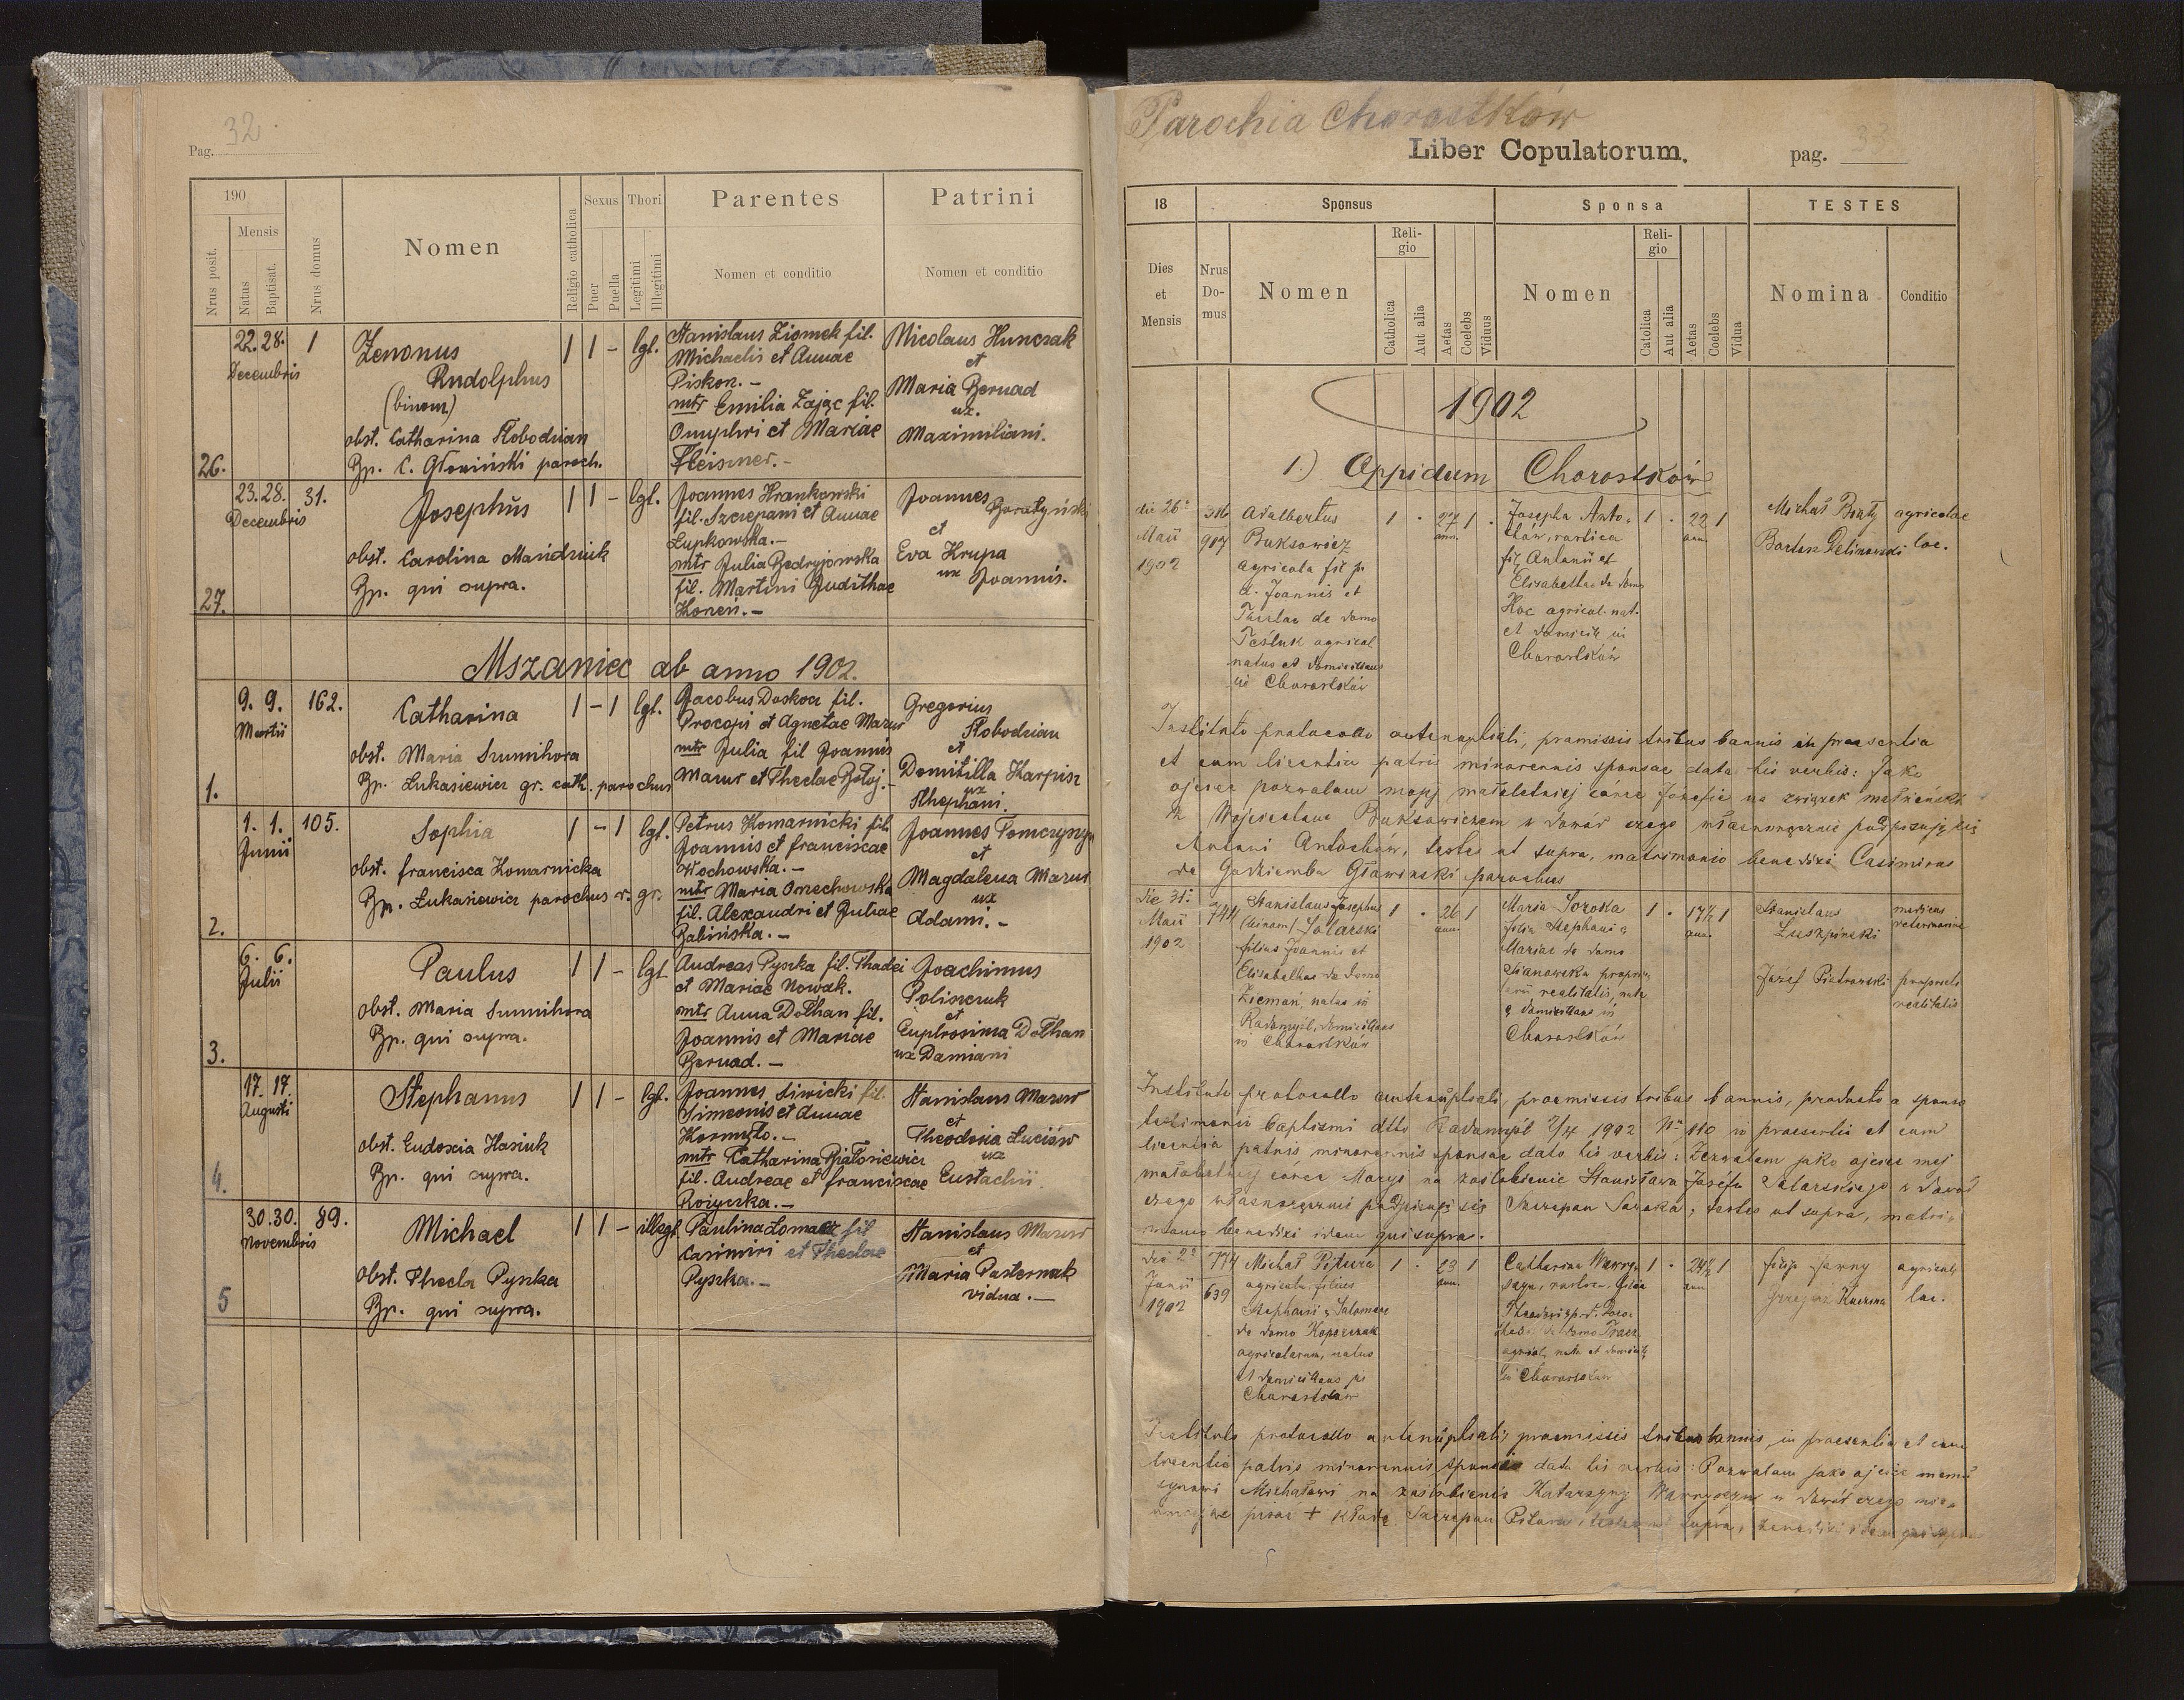 Pag. 32
190
Nrus posit.
Mensis
Natus
Baptisat.
Nrus domus
Nomen
Religio catholica
Sexus
Puer
Puella
Thori
Legitimi
Illegitimi
Parentes
Nomen et conditio
Patrini
Nomen et conditio
26.
22. 28.
Decembris
1
Zenonus
Rudolphus
(binom)
obst. Catharina Słobodzian
Bp. C. Głowiński paroch.
1 1 - lgt.
Stanislaus Ziomek fil.
Michaelis et Annae
Piskon. -
mtr Emilia Zając fil.
Onuphri et Mariae
Fleiszner. -
Nicolaus Hunczak
et
Maria Bernad
ux.
Maximiliani.
27.
23. 28.
Decembris
31.
Josephus
obst. Carolina Mandziuk
Bp. qui supra.
1 1 - lgt.
Joannes Hrankowski
fil. Szczepani et Annae
Łupkowska. -
mtr Julia Bedryjowska
fil. Martini Judithae
Koreń. -
Joannes
et
Eva Krupa
ux Joannis.
Mszaniec ab anno 1902.
1.
9. 9.
Martii
162.
Catharina
obst. Maria Sumihora
Bp. Łukasiewicz gr. cath. parochus
1 - 1 lgt.
Jacobus Doskocz fil.
Procopi et Agnetae Mazur
mtr Julia fil Joannis
Mazur et Theclae
Gregorius
Słobodzian
et
Domitilla Karpisz
ux
Stephani.
2.
1. 1.
Junii
105.
Sophia
obst. Francisca Komarnicka
Bp. Łukasiewicz parochus r. gr.
1 - 1 lgt.
Petrus Komarnicki fil.
Joannis et Franciscae
Włochowska. -
mtr Maria Orzechowska
fil. Alexandri et Juliae
Babińska. -
Joannes Tomczyszyn
et
Magdalena Mazur
ux
Adami. -
3.
6. 6.
Julii
Paulus
obst. Maria Sumihora
Bp. qui supra.
1 1 - lgt.
Andreas Pyszka fil. Thadei
et Mariae Nowak.
mtr Anna Dołhan fil.
Joannis et Mariae
Bernad. -
Joachimus
Poliszczuk
et
Euphrosina Dołhan
ux Damiani
4.
17. 17.
Augusti
Stephanus
obst. Eudoxia Hasiuk
Bp. qui supra.
1 1 - lgt.
Joannes Siwicki fil.
Simeonis et Annae
Kormyło. -
mtr Catharina Białosiewicz
fil. Andreae et Franciscae
Rożyczka. -
Stanislaus Mazur
et
Theodosia Łuciów
ux
Eustachii.
5
30. 30.
Novembris
89.
Michael
Obst. Thecla Pyszka
Bp. qui supra.
1 1 - illegt.
Paulina fil
Casimiri et Theclae
Pyszka. -
Stanislaus Mazur
et
Maria Pasternak
vidua. -
Parochia Chorostków
Liber Copulatorum.
pag. 33
18
Dies
et
Mensis
Nrus
Do-
mus
Sponsus
Nomen
Reli-
gio
Catholica
Aut alia
Aetas
Coelebs
Viduus
Sponsa
Nomen
Reli-
gio
Catolica
Aut alia
Aetas
Coelebs
Vidua
TESTES
Nomina
Conditio
1902
1.) Oppidum Chorostków
die 26a
Maii
1902
316
907
Adalbertus
Buksowicz
agricola fil p.
d. Joannis et
Theclae de domo
agricol
natus et domicilians
in Chorostków
1 . 27 1 .
ann.
Josepha Anto-
chów, rustica
fil. Antonii et
Elisabethae de domo
agricol. nat.
et domicil. in
Chorostków
1 . 22 1
ann.
Michał
Bartek Delinowski
agricolae
loc.
Instituto protocollo antenuptiali, praemissis tribus bannis in praesentia
et cum licentia patris minorennis sponsae data his verbis: Jako
ojciec pozwalam mojej małoletniej córce Józefie na związek małżeński
z Wojciechem Buksowiczem w dowód czego własnoręcznie podpisuję się
Antoni Antochów, testes ut supra, matrimonio benedixi Casimirus
de Godziemba Głowiński parochus
die 31a
Maii
1902
744
Stanislaus Josephus
(binom) Solarski
filius Joannis et
Elisabethae de domo
Zieman, natus in
Radomyśl, domicilians
in Chorostków
1 . 26 1
ann.
Maria Soroka
filia Stephani &
Mariae de domo
realitatis, nata
& domicilians in
Chorostków
1 . 17½ 1
ann.
Stanislaus
Łuszpiński
medicus
veterinariae
Józef Piotrowski
propriet.
realitatis
Instituto protocollo antenuptiali, praemissis tribus bannis, producto a sponso
testimonio baptismi ddto Radomyśl 7/4 1902 No 110 in praesentia et cum
licentia patris minorennis sponsae dato his verbis: Zezwalam jako ojciec mej
małoletniej córce Maryi na zaślubienie Stanisława Józefa Solarskiego w dowód
czego własnoręcznie podpisuję się Szczepan Soroka, testes ut supra, matri-
monio benedixi idem qui supra.
die 2a
Junii
1902
774
639
Michał Pitura
agricola, filius
Stephani & Salomeae
de domo Koporczak
agricolarum, natus
et domicilians in
Chorostków
1 . 23 1
ann.
Catharina
rustica, filia
Theodori
de domo
agricol. nata et domicil.
in Chorostków
1 . 24½ 1
ann
Filip
Grzegorz Kuczma
agricolae
loc.
Instituto protocollo antenuptiali, praemissis tribus bannis, in praesentia et cum
licentia patris minorennis sponsi data his verbis: Pozwalam jako ojciec memu
synowi Michałowi na zaślubienie Katarzyny w dowód czego nie
umiejąc pisać + kładę Szczepan Pitura, testes ut supra, benedixi idem qui supra